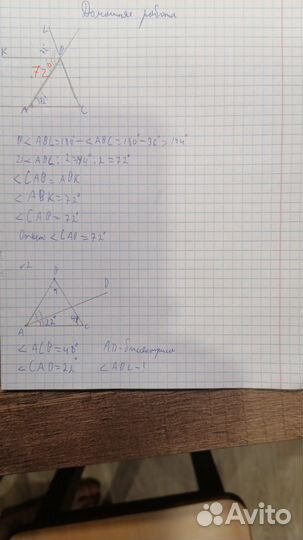 Домашняя работа
L
K
B
72°
A
C
1) <ABL=180°-<ABC=180°-36°=144°
2) <ABL:2=144°:2=72°
<CAB=ABK
<ABK=72°
<CAB=72°
Ответ <CAB=72°
√2
B
D
22°
A
C
<ACB=48° AD-биссектриса
<CAD=22° <ADC-?
Avito